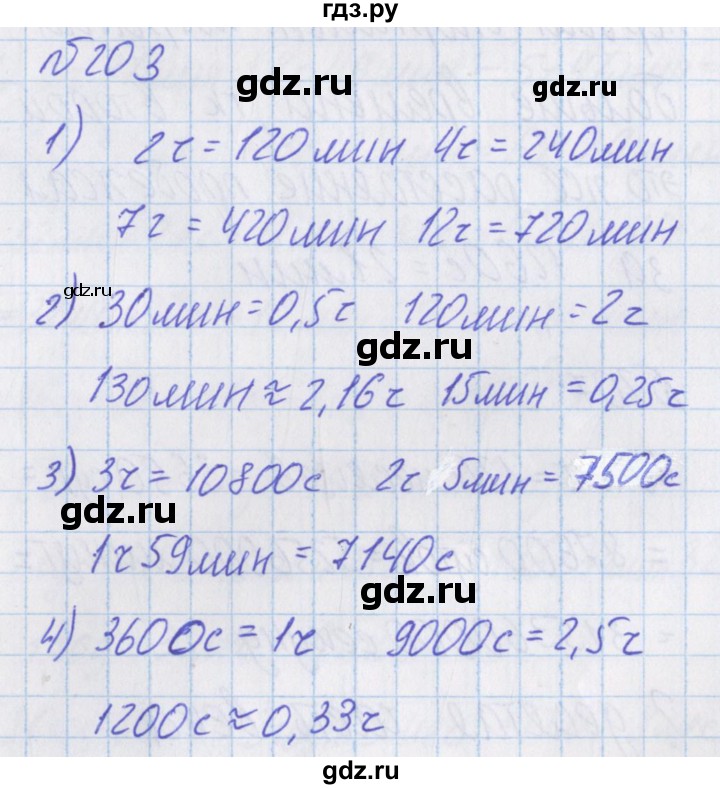 гдз.ру
№203
gdz.ru
gdz.ru
1) 2ч = 120мин 4ч = 240мин
7ч = 420мин 12ч = 720мин
gdz.ru
2) 30мин = 0,5ч 120мин = 2ч
gdz.ru
130мин ≈ 2,16ч 15мин = 0,25ч
3) 3ч = 10800с 2ч 5мин = 7500с
gdz.ru
1ч 59мин = 7140с
gdz.ru
4) 3600с = 1ч 9000с = 2,5ч
1200с ≈ 0,33ч
gdz.ru